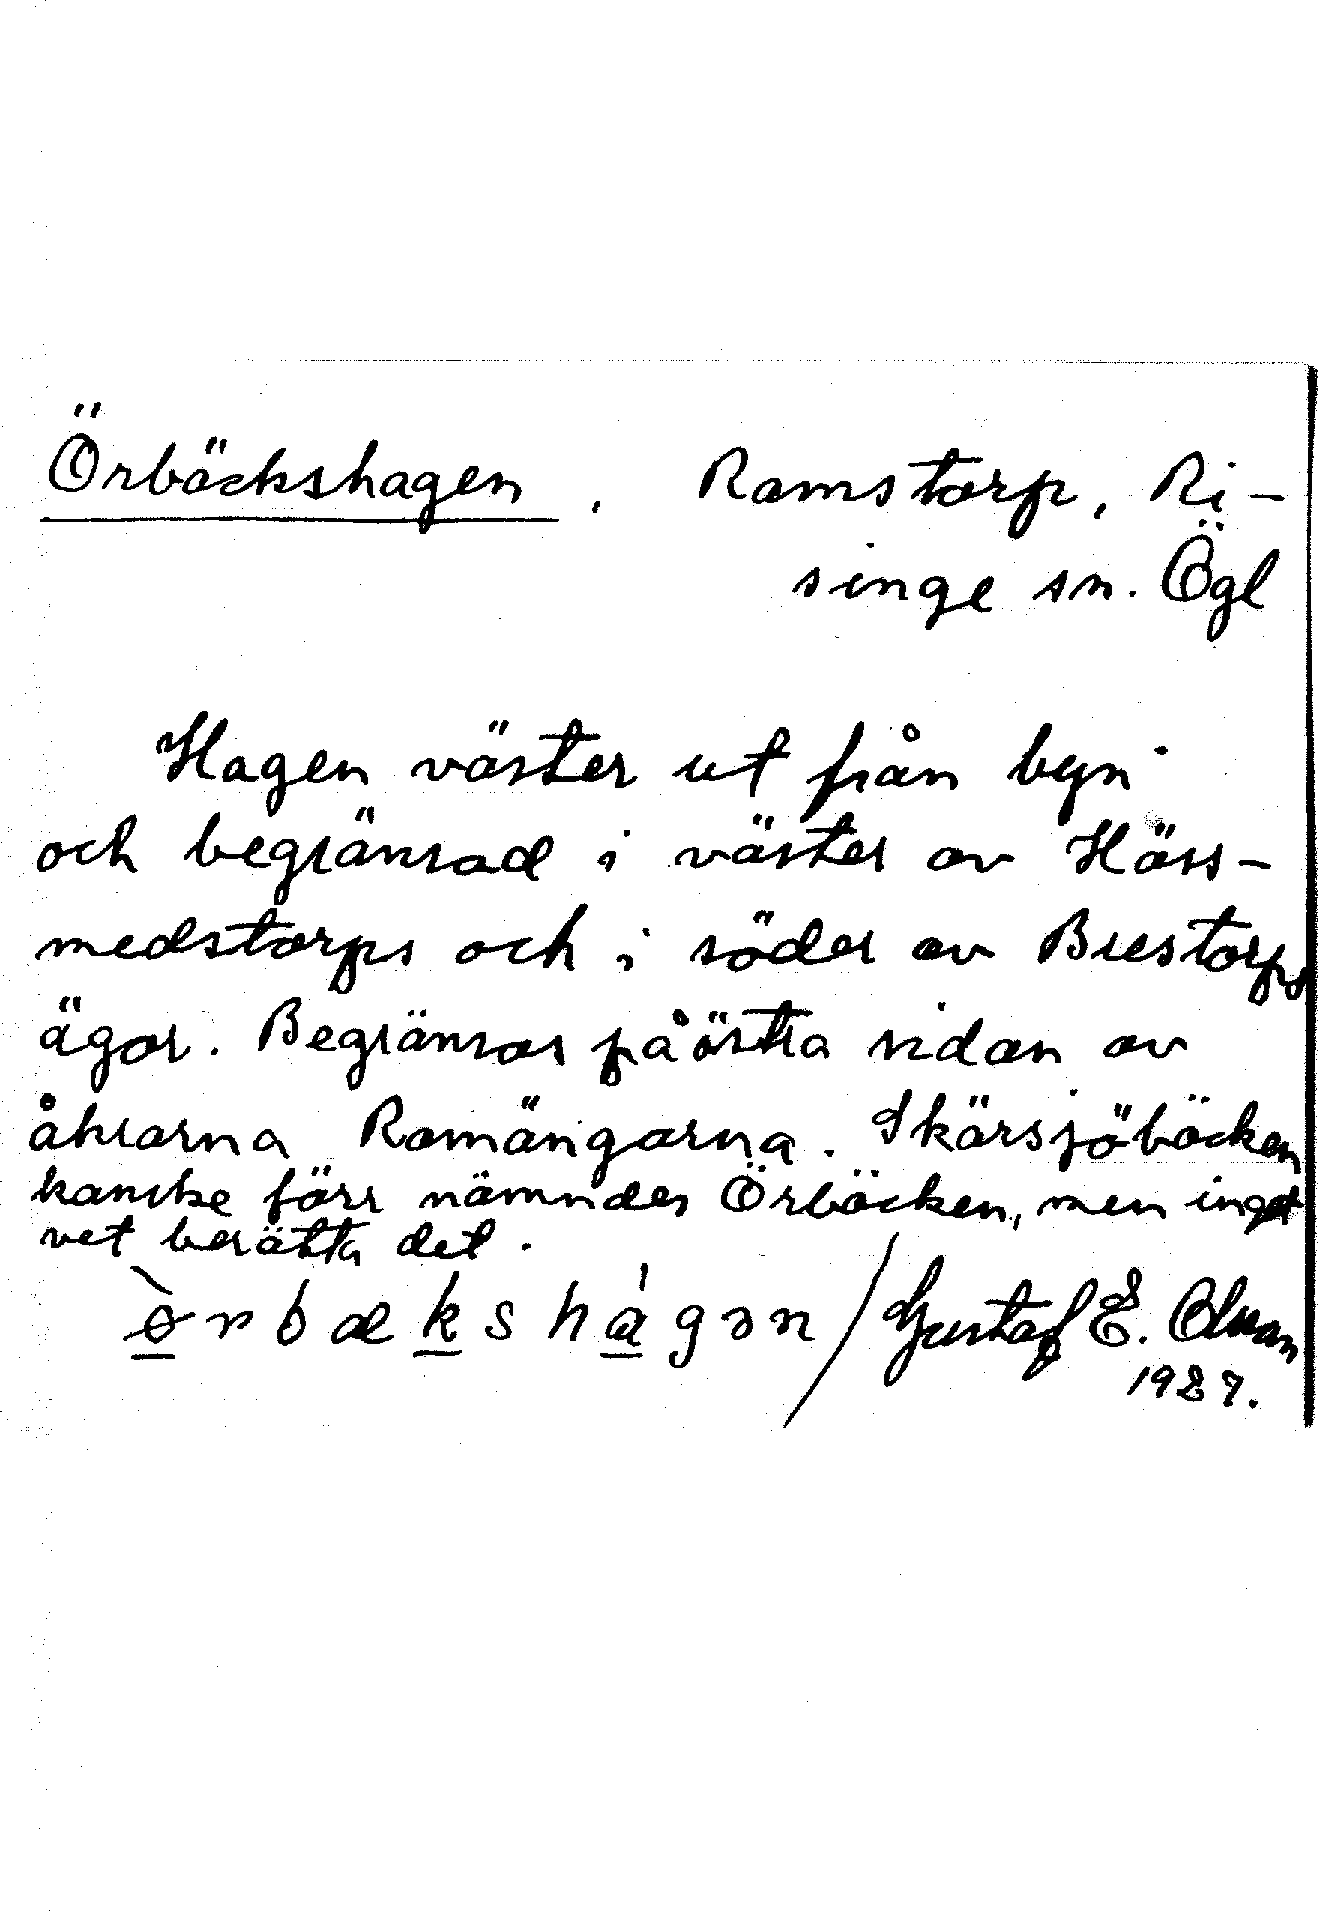 Örbäckshagen, Ramstorp, Ri-
singe sn. Ögl
Hagen väster ut från byn
och begränsad i väster av Härs-
medstorps och i söder av Brestorps
ägor. Begränsas på östra sidan av
åkrarna Ramängarna. Skärsjöbäcken
kanske förr nämndes Örbäcken, men inget
vet berätta det.
ø̀rbækshágən / Gustaf E. Olman
1927.